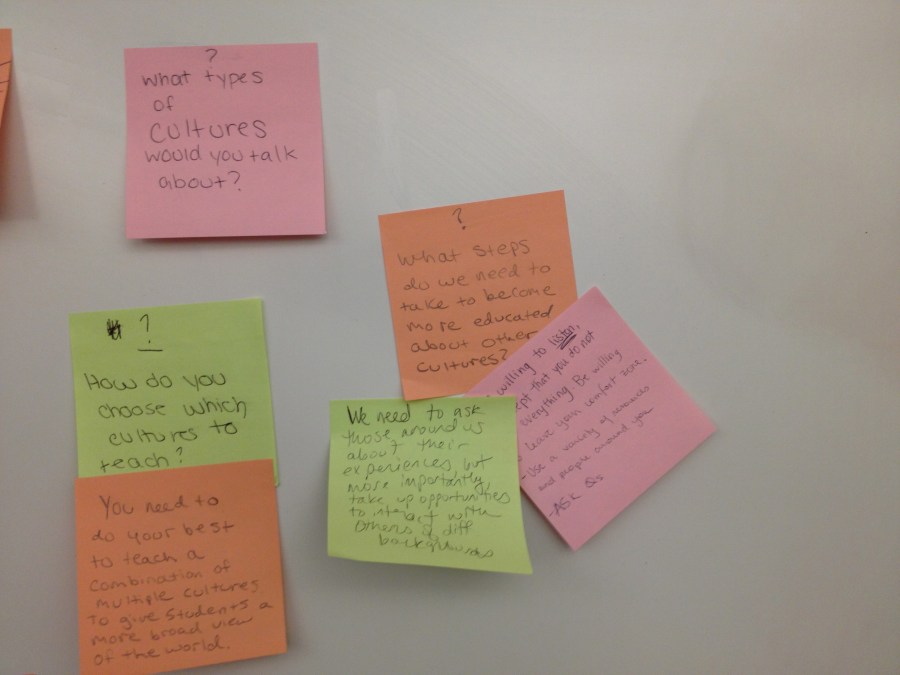 ?
What types
of
cultures
would you talk
about?
?
How do you
choose which
cultures to
teach?
You need to
do your best
to teach a
combination of
multiple cultures
to give students a
more broad view
of the world.
?
What steps
do we need to
take to become
more educated
about other
cultures?
We need to ask
those around us
about their
experiences, but
more importantly,
take up opportunities
to interact with
others of diff
backgrounds
willing to listen,
that you do not
everything. Be willing
leave your comfort zone.
- Use a variety of resources
and people around you
- ASK Qs